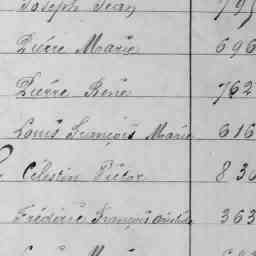 Joseph Jean 795
Pierre Marie 696
Pierre René 762
Louis François Marie 616
Célestin Victor 836
Frédéric François Aristide 363